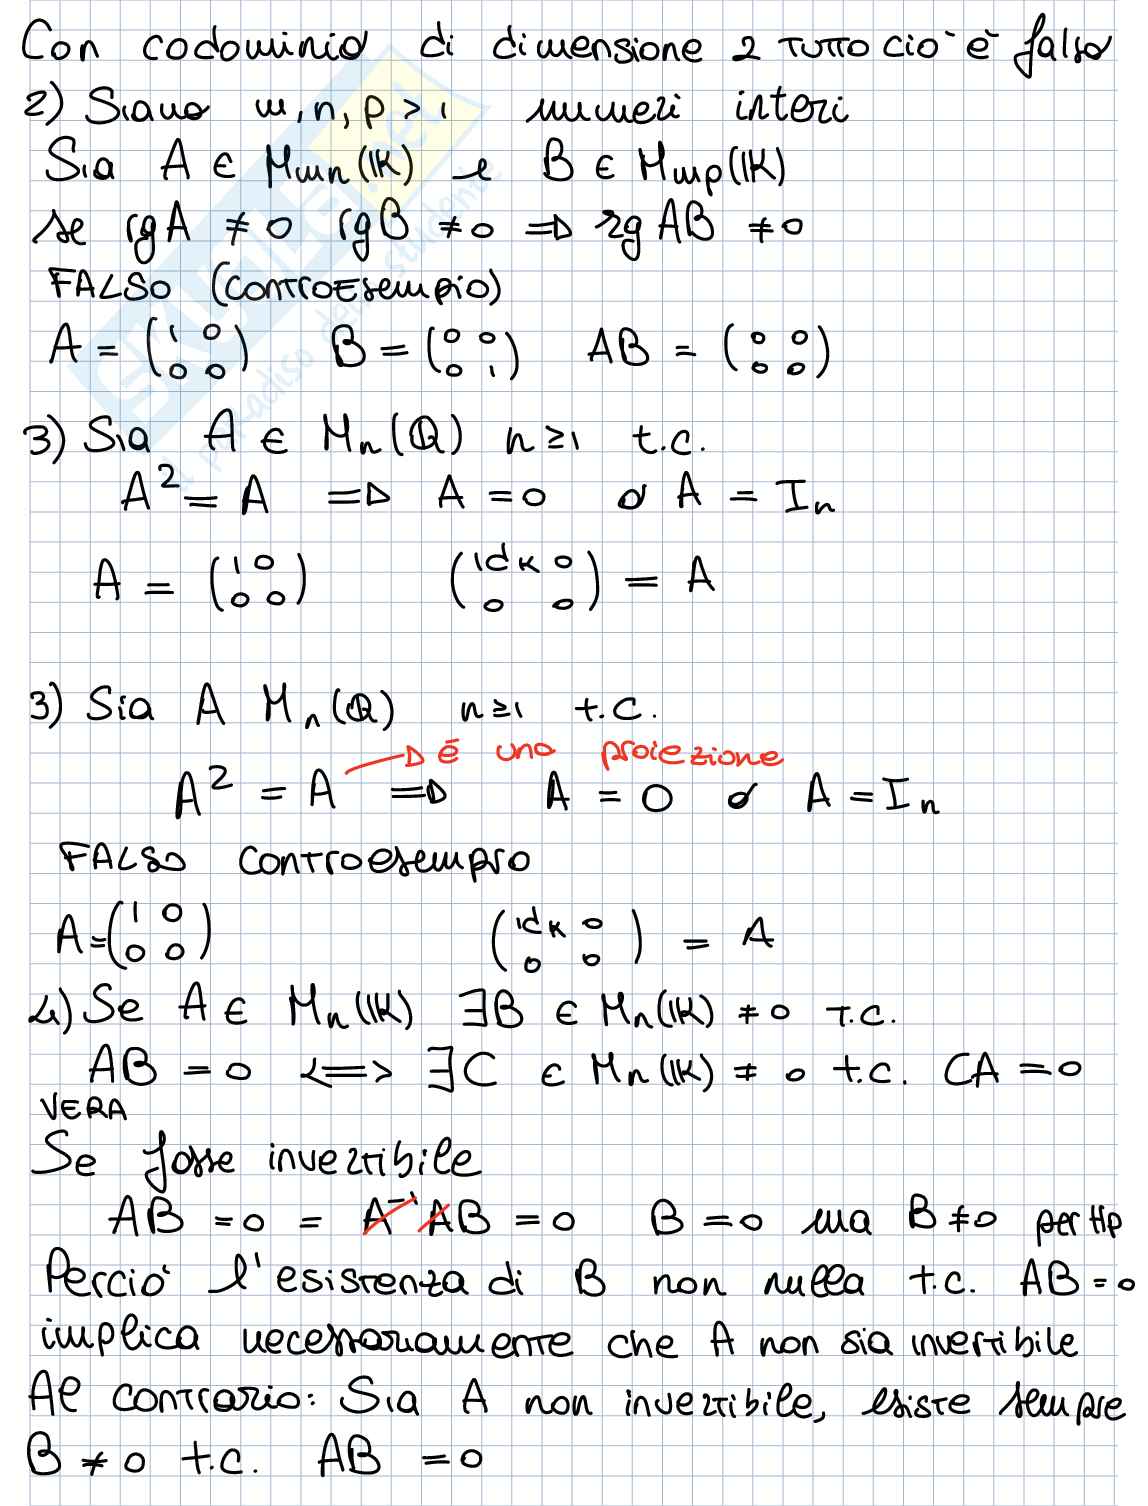 Con codominio di dimensione 2 TUTTO ciò è falso
2) Siano m, n, p > 1 numeri interi
Sia A ∈ Mmn(IK) e B ∈ Mmp(IK)
se rgA ≠ 0 rgB ≠ 0 => rg AB ≠ 0
FALSO (controesempio)
A = (1 0 0 0) B = (0 0 0 1) AB = (0 0 0 0)
3) Sia A ∈ Mn(Q) n ≥ 1 t.c.
A² = A => A = 0 o A = In
A = (1 0 0 0) (idk 0 0 0) = A
3) Sia A Mn(Q) n ≥ 1 t.c.
è una proiezione
A² = A => A = 0 o A = In
FALSO controesempio
A = (1 0 0 0) (idk 0 0 0) = A
4) Se A ∈ Mn(IK) ∃B ∈ Mn(IK) ≠ 0 t.c.
AB = 0 <=> ∃C ∈ Mn(IK) ≠ 0 t.c. CA = 0
VERA
Se fosse invertibile
AB = 0 = A⁻¹AB = 0 B = 0 ma B ≠ 0 per Hp
Perciò l'esistenza di B non nulla t.c. AB = 0
implica necessariamente che A non sia invertibile
Al contrario: Sia A non invertibile, esiste sempre
B ≠ 0 t.c. AB = 0